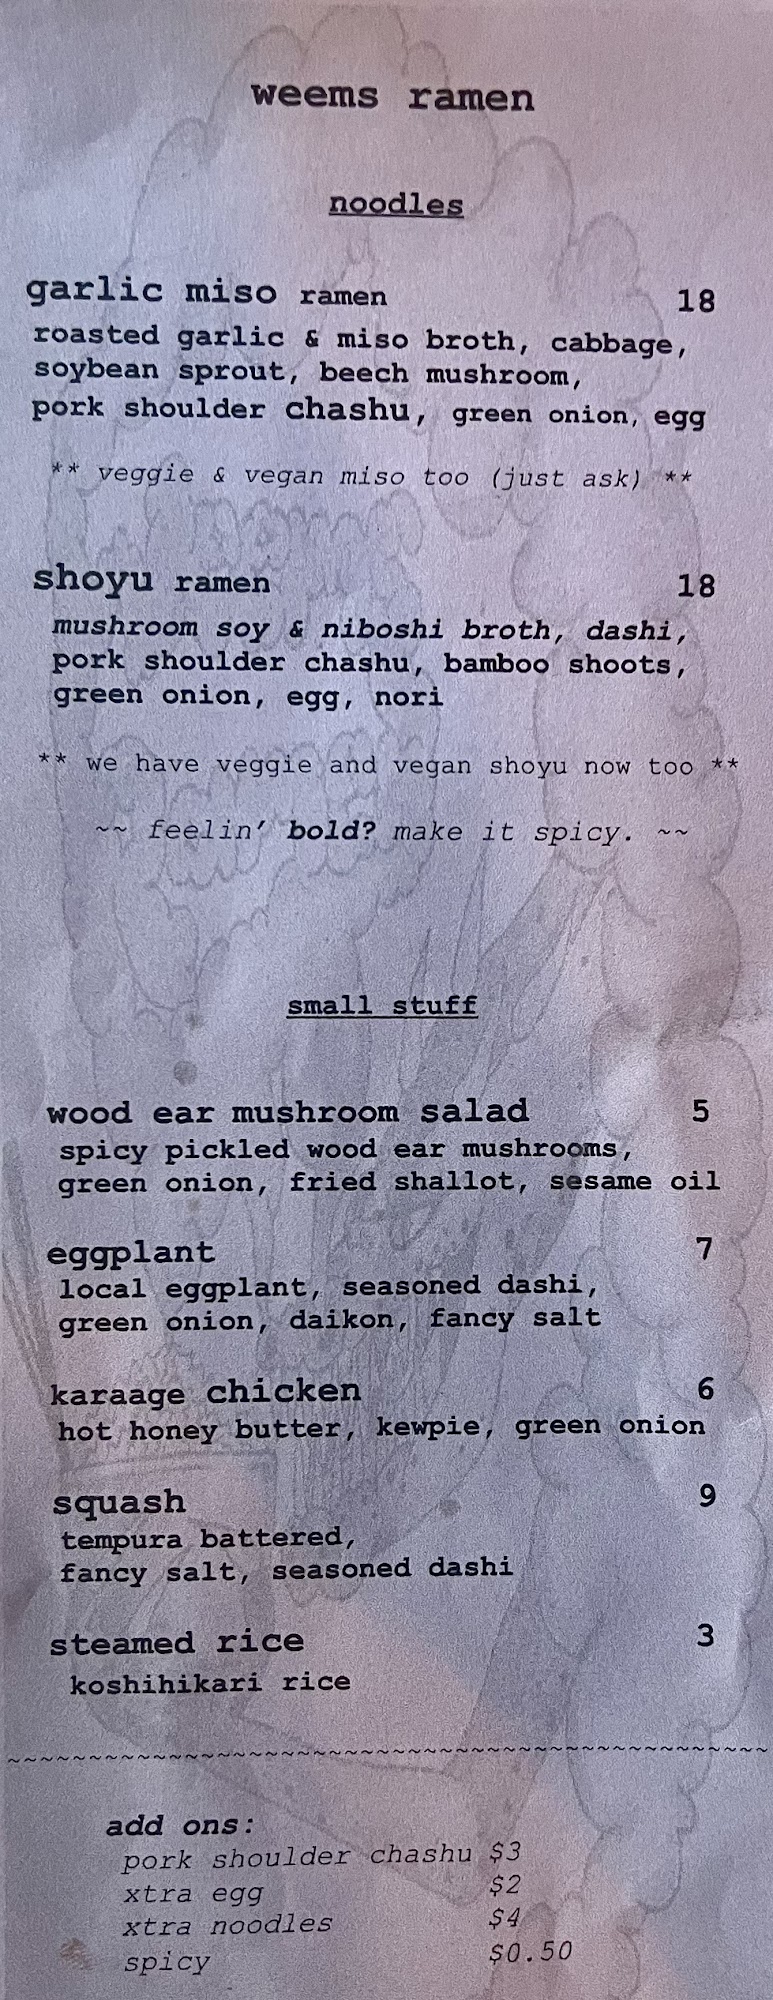 weems ramen
noodles
garlic miso ramen 18
roasted garlic & miso broth, cabbage,
soybean sprout, beech mushroom,
pork shoulder chashu, green onion, egg
** veggie & vegan miso too (just ask) **
shoyu ramen 18
mushroom soy & niboshi broth, dashi,
pork shoulder chashu, bamboo shoots,
green onion, egg, nori
** we have veggie and vegan shoyu now too **
~~ feelin' bold? make it spicy. ~~
small stuff
wood ear mushroom salad 5
spicy pickled wood ear mushrooms,
green onion, fried shallot, sesame oil
eggplant 7
local eggplant, seasoned dashi,
green onion, daikon, fancy salt
karaage chicken 6
hot honey butter, kewpie, green onion
squash 9
tempura battered,
fancy salt, seasoned dashi
steamed rice 3
koshihikari rice
~~~~~~~~~~~~~~~~~~~~~~~~~~~~~~~~~~~~~~~~~~~~~~~~
add ons:
pork shoulder chashu $3
xtra egg $2
xtra noodles $4
spicy $0.50